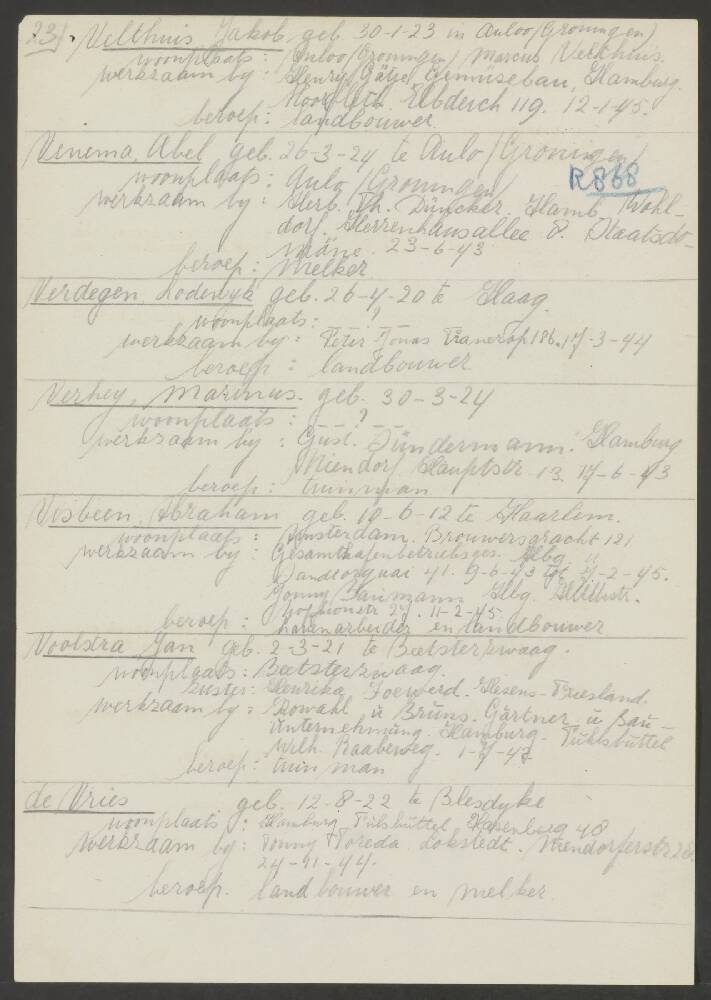 23. Velthuis Jakob geb. 30-1-23 in Anloo (Groningen)
woonplaats: Anloo (Groningen) Marcus Velthuis.
werkzaam by: Henry Gätje Gemüsebau, Hamburg.
Moorfleth. Elbdeich 119. 12-1-45.
beroep: landbouwer.
Venema, Abel geb. 26-3-24 te Anlo (Groningen)
woonplaats: Anlo (Groningen)
R868
werkzaam by: Herb. Th. Düncker. Hamb. Wohl-
dorf Herrenhausallee 8. Staatsdo-
mäne. 23-6-43
beroep: melker
Verdegen, Lodewyk geb. 26-4-20 te Haag.
woonplaats: ?
werkzaam by: Peter Jonas 186. 17-3-44
beroep: landbouwer
Verhey, Marinus. geb. 30-3-24
woonplaats: - - ? - -
werkzaam by: Gust. Hamburg
Niendorf Hauptstr 13. 17-6-43
beroep: tuinman
Visbeen, Abraham geb. 10-6-12 te Haarlem.
woonplaats: Amsterdam. Brouwersgracht 121
werkzaam by: Gesamthafenbetriebsges. Hbg. u
41. 9-6-43 tot 7-2-45.
Jonny Baumann Hbg.
27. 11-2-45.
beroep: havenarbeider en landbouwer
Voolstra Jan geb. 2-3-21 te Beetsterzwaag.
woonplaats: Beetsterzwaag.
zuster: Henrika Hesens-Friesland.
werkzaam by: Rowahl u Bruns. Gärtner u Bau-
unternehmung. Hamburg- Fuhlsbüttel
Wilh. Raabeweg. 1-7-43
beroep: tuinman
de Vries geb. 12-8-22 te Blesdyke
woonplaats: Hamburg Fuhlsbüttel Hasenberg 40
werkzaam by: Lokstedt. Niendorferstr
24-11-44.
beroep. landbouwer en melker.